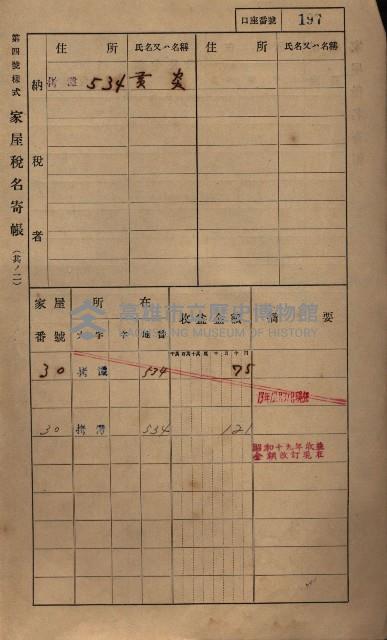 口座番號 197
第四號樣式 家屋稅名寄帳(其ノ二)
納稅者
住所 氏名又ハ名稱 住所 氏名又ハ名稱
534 黃炎
家屋番號 所在 收益金額 摘要
大字 字 地番
千百十萬千百十円
30 534 75
30 534 121
昭和十九年收益
金額改訂現在
高雄市立歷史博物館
KAOHSIUNG MUSEUM OF HISTORY